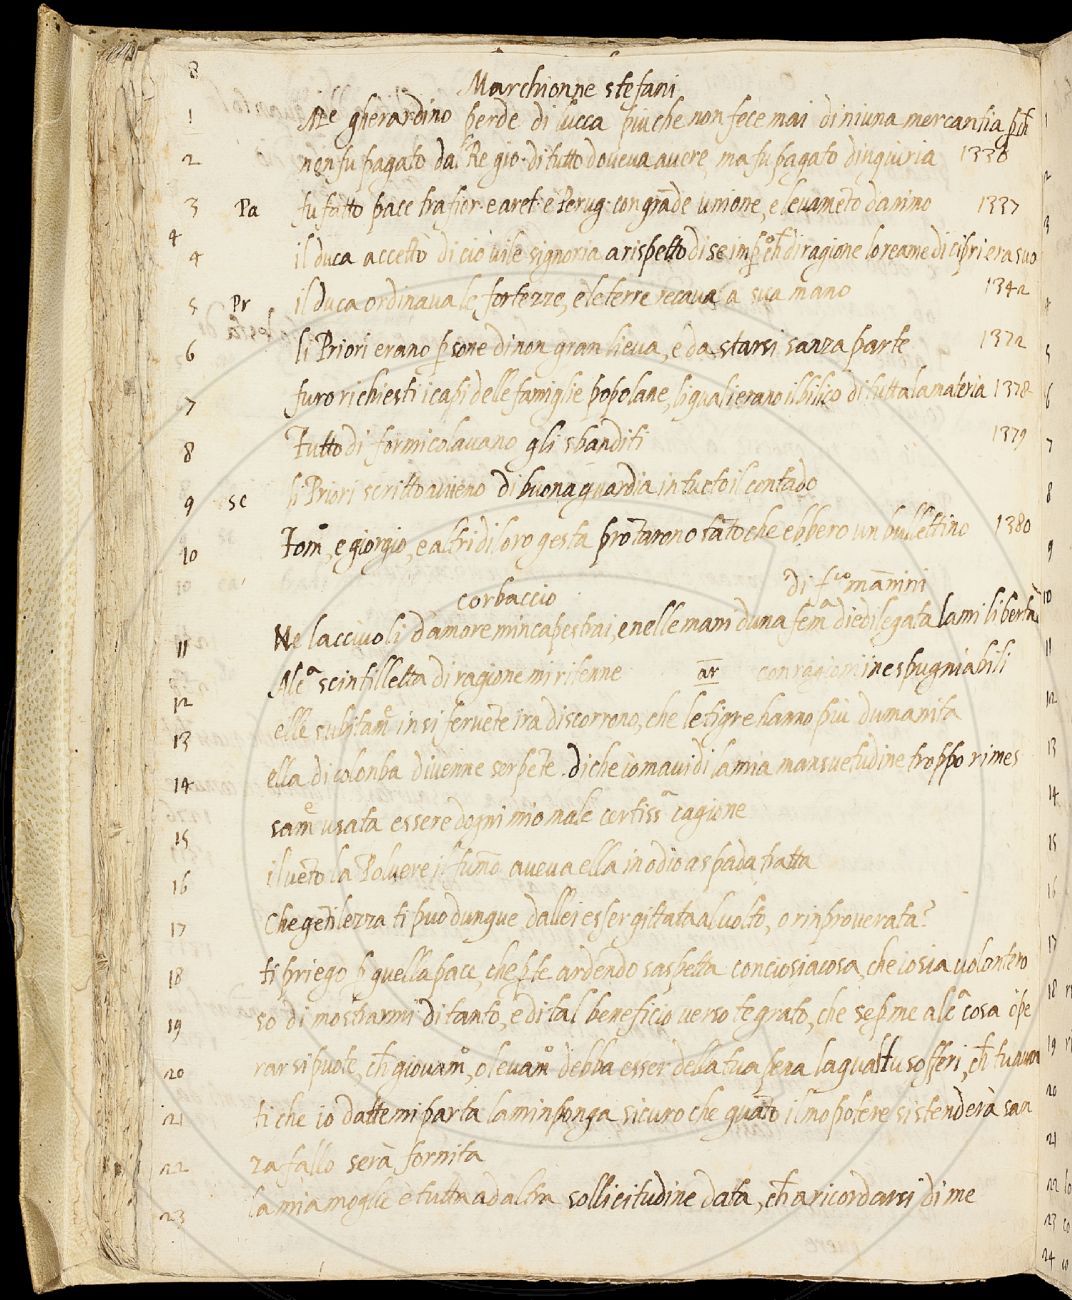 8
Marchionne stefani
1 gherardino perde di lucca piu che non fece mai di niuna mercantia
2 non fu pagato dal Re gio. di tutto doveva avere, ma fu pagato dingiuria 1330
3 Pa fu fatto pace tra fior. e aret. e Perug. con grãde unione, e levamẽto danimo 1337
4
4 il duca accetto di cio vile signoria a rispetto di se di ragione loreame di cipri era suo
5 Pr il duca ordinava le fortezze, e le terre recava a sua mano 1342
6 li Priori erano psone di non gran lieva, e da starsi sanza parte 1372
7 furo richiesti i capi delle famiglie popolane, li quali erano il bilico di tutta la materia 1378
8 Tuttodi formicolavano gli sbanditi 1379
9 sc li Priori scritto avieno di buona guardia in tucto il contado
10 Tom, e giorgio, e altri di loro gesta tãto che ebbero un bullettino 1380
corbaccio di mãnini
11 Ne lacciuoli damore mincapestrai, e nelle mani duna fem legata la mi libertà
12 Alc scintilletta di ragione mi ritenne ar con ragioni inespugniabili
13 elle subitam in si fervẽte ira discorrono, che le tigre hanno più dumanita
14 ella di colonba divenne serpẽte. di che io mavidi la mia mansuetudine troppo rimes
15 sam usata essere dogni mio male certiss cagione
16 il vẽto la Polvere il fumo aveva ella in odio a spada tratta
17 che gẽtilezza ti puo dunque dallei esser gittata al volto, o rinproverata?
18 ti priego p quella pace, che p te ardendo saspetta conciosiacosa, che io sia volontero
19 so di mostrarmi di tanto, e di tal beneficio verso te grato, che se p me alc cosa ope
20 rar si puote, giovam, o levam debba esser della tua pena la qual tu sofferi, tu avan
21 ti che io datte mi parta la minponga sicuro che quãto il mio potere si stenderà san
22 za fallo serà fornita
23 la mia moglie è tutta ad altra sollicitudine data, a ricordarsi di me